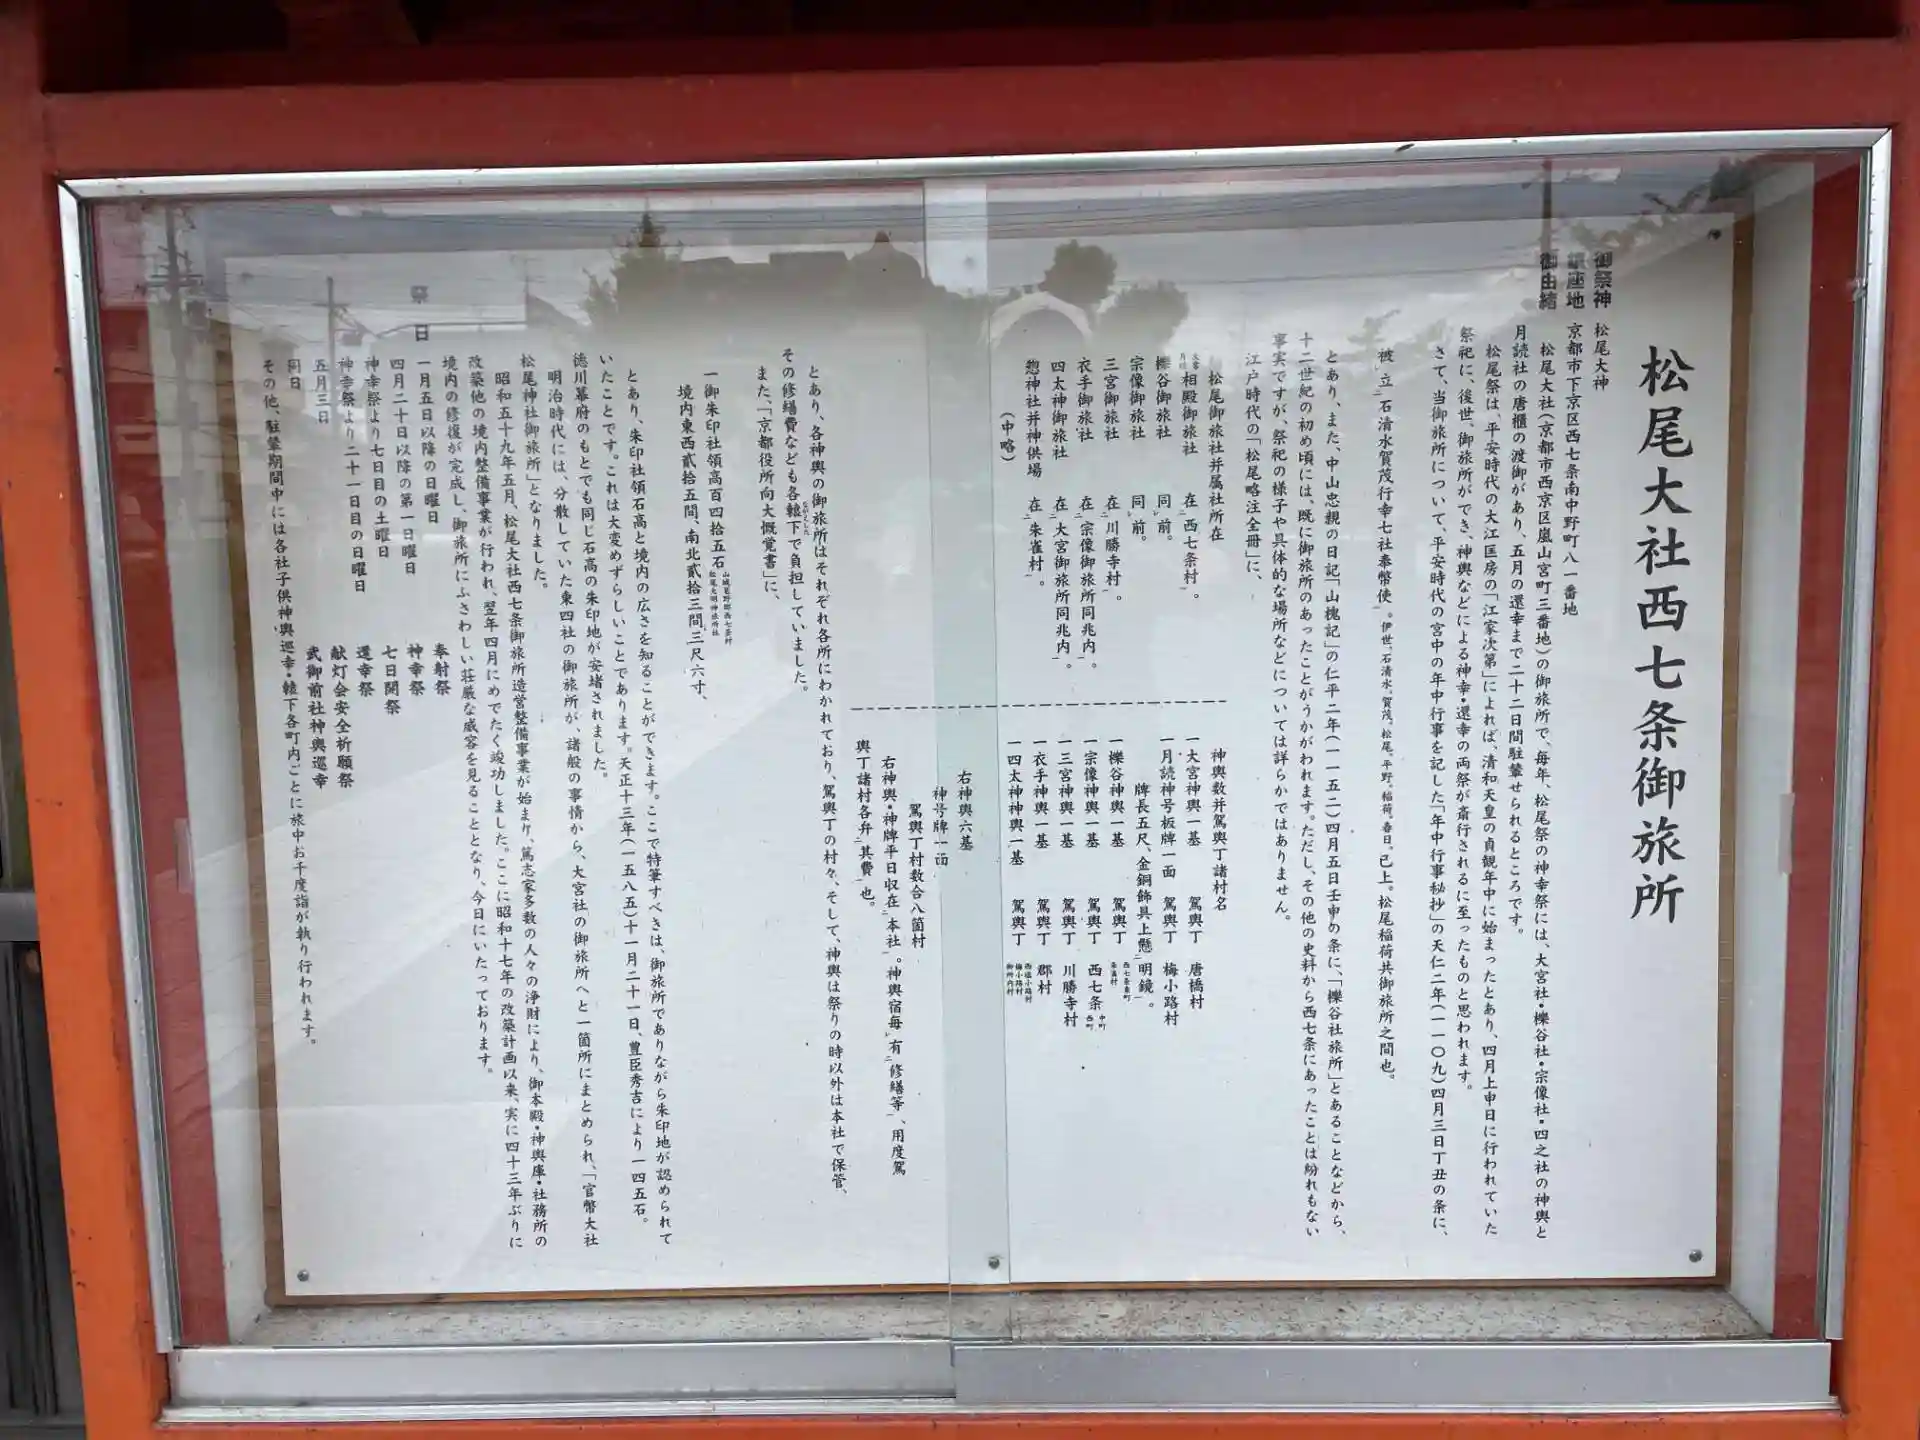 松尾大社西七条御旅所
御祭神　松尾大神
鎮座地　京都市下京区西七条南中野町八一番地
御由緒
松尾大社（京都市西京区嵐山宮町三番地）の御旅所で、毎年、松尾祭の神幸祭には、大宮社・櫟谷社・宗像社・四之社の神輿と
月読社の唐櫃の渡御があり、五月の還幸まで二十二日間駐輦せられるところです。
松尾祭は、平安時代の大江匡房の「江家次第」によれば、清和天皇の貞観年中に始まったとあり、四月上申日に行われていた
祭祀に、後世、御旅所ができ、神輿などによる神幸・還幸の両祭が斎行されるに至ったものと思われます。
さて、当御旅所について、平安時代の宮中の年中行事を記した「年中行事秘抄」の天仁二年（一一〇九）四月三日丁丑の条に、
被レ立二石清水賀茂行幸七社奉幣使一。伊世、石清水、賀茂、松尾、平野、稲荷、春日、已上。松尾稲荷共御旅所之間也。
とあり、また、中山忠親の日記「山槐記」の仁平二年（一一五二）四月五日壬申の条に、「櫟谷社旅所」とあることなどから、
十二世紀の初め頃には、既に御旅所のあったことがうかがわれます。ただし、その他の史料から西七条にあったことは紛れもない
事実ですが、祭祀の様子や具体的な場所などについては詳らかではありません。
江戸時代の「松尾略注全冊」に、
松尾御旅社并属社所在
大宮月読　相殿御旅社　在二西七条村一。
櫟谷御旅社　同レ前。
宗像御旅社　同レ前。
三宮御旅社　在二川勝寺村一。
衣手御旅社　在二宗像御旅所同兆内一。
四太神御旅社　在二大宮御旅所同兆内一。
惣神社并神供場　在二朱雀村一。
（中略）
神輿数并駕輿丁諸村名
一大宮神輿一基　駕輿丁　唐橋村
一月読神号板牌一面　駕輿丁　梅小路村
牌長五尺、金銅飾具上懸二明鏡一。
一櫟谷神輿一基　駕輿丁　西七条東町　朱雀村
一宗像神輿一基　駕輿丁　西七条　中町　西町
一三宮神輿一基　駕輿丁　川勝寺村
一衣手神輿一基　駕輿丁　郡村
一四太神神輿一基　駕輿丁　西塩小路村　梅小路村　御所内村
右神輿六基
神号牌一面
駕輿丁村数合八箇村
右神輿・神牌平日収在二本社一。神輿宿毎レ有二修繕等一、用度駕
輿丁諸村各弁二其費一也。
とあり、各神輿の御旅所はそれぞれ各所にわかれており、駕輿丁の村々、そして、神輿は祭りの時以外は本社で保管、
その修繕費なども各轅下で負担していました。
また、「京都役所向大慨覚書」に、
一御朱印社領高百四拾五石　山城葛野郡西七条村　松尾大明神旅所社
境内東西貳拾五間、南北貳拾三間三尺六寸、
とあり、朱印社領石高と境内の広さを知ることができます。ここで特筆すべきは、御旅所でありながら朱印地が認められて
いたことです。これは大変めずらしいことであります。天正十三年（一五八五）十一月二十一日、豊臣秀吉により一四五石。
徳川幕府のもとでも同じ石高の朱印地が安堵されました。
明治時代には、分散していた東四社の御旅所が、諸般の事情から、大宮社の御旅所へと一箇所にまとめられ、「官幣大社
松尾神社御旅所」となりました。
昭和五十九年五月、松尾大社西七条御旅所造営整備事業が始まり、篤志家多数の人々の浄財により、御本殿・神輿庫・社務所の
改築他の境内整備事業が行われ、翌年四月にめでたく竣功しました。ここに昭和十七年の改築計画以来、実に四十三年ぶりに
境内の修復が完成し、御旅所にふさわしい荘厳な威容を見ることとなり、今日にいたっております。
祭日
一月五日以降の日曜日　奉射祭
四月二十日以降の第一日曜日　神幸祭
神幸祭より七日目の土曜日　七日閉祭
神幸祭より二十一日目の日曜日　還幸祭
五月三日　献灯会安全祈願祭
同日　武御前社神輿巡幸
その他、駐輦期間中には各社子供神輿巡幸・轅下各町内ごとに旅中お千度詣が執り行われます。